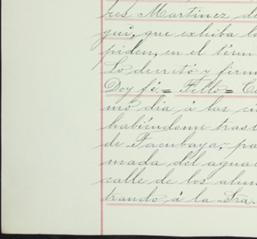 tres Martinez de
qui, que exhiba lo
piden, en el térm
Lo decretó y firm
Doy fé = Tello =
mo dia á las ci
habiéndome tras
de Tacubaya, pa
mada del agua
calle de los
trando á la Sra.